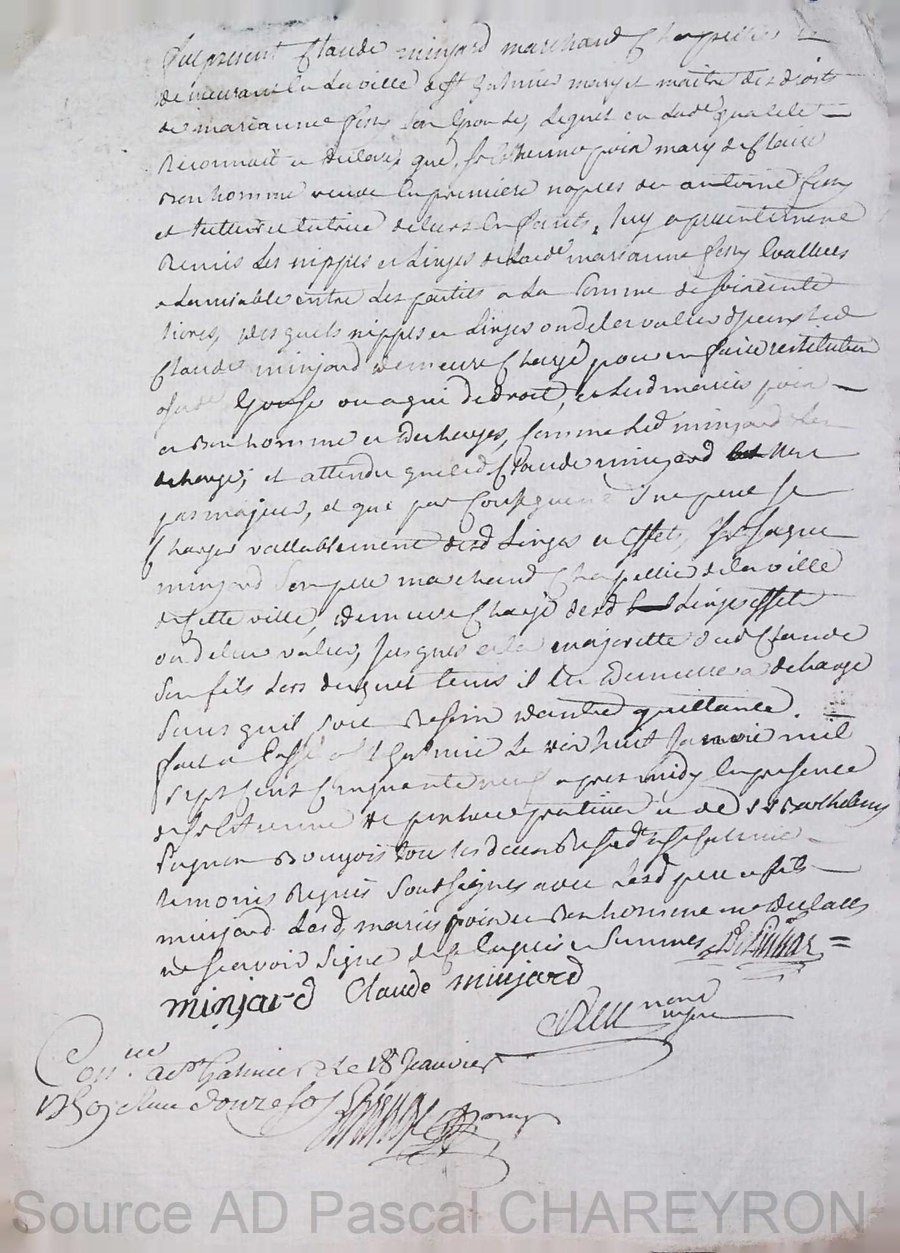 Fut present Claude minjard marchand Chapellier
demeurant en La ville de St Galmier mary et maitre des droits
de marianne fessy son Epouse, Lequel en Lad.e qualité
Reconnait et declare, que Sr Etienne poix mary de Claire
Bonhomme veuve En premiere nopces de antoine fessy
et tutteur et tutrice de leurs Enfants, luy a presentement
Remis Les nippes et Linges de Lade marianne fessy Evallués
a Lamiable entre Les parties a La Somme de soixante
livres, desquels nippes et Linges ou de leur valeur led
Claude minjard demeure Chargé pour en faire restitution
a sade Epouse ou a qui de droit, et Lesd mariés poix
et Bonhomme en decharges, Comme Led minjard Les en
decharge; et attendu que led Claude minjard nest
pas majeur, et que par Consequent il ne peut se
Charger vallablement desd Linges et Effets, Sr
minjard son pere marchand Chapellier de la ville
de Cette ville, demeure Chargé desd Linges effets
ou de leur valeur, Jusques a la majoritté dud Claude
son fils Lors duquel tems il En demeurera dechargé
sans quil soit Besoin dautre quittance.
fait et passé a St Galmier Le dix huit Janvier mil
sept Cent Cinquante neuf apres midy En presence
de Sr Etienne praticien et de Sr Barthelemy
Pagnon Bourgois tous les deux Residt a St Galmier
temoins Requis Soussignés avec Lesd pere et fils
minjard Lesd mariés poix et Bonhomme ont declaré
ne scavoir signer de ce Enquis et Sommés
minjard Claude minjard
nore
Con.llé a St Galmier Le 18 Janvier
1759 Reçu douze sols